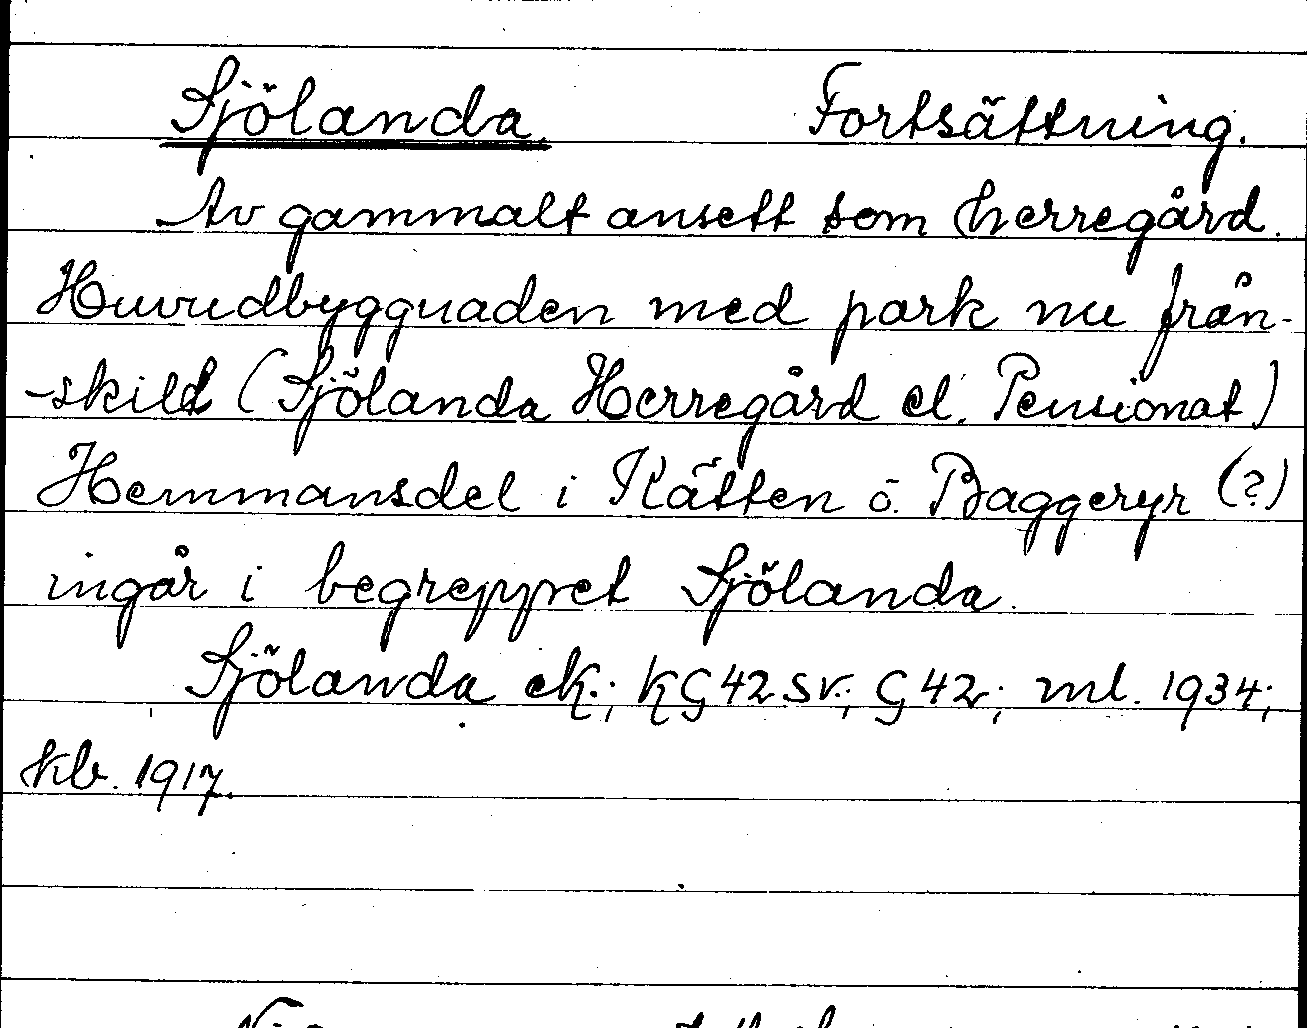 Sjölanda Fortsättning.
Av gammalt ansett som herregård.
Huvudbyggnaden med park nu från-
-skild (Sjölanda Herregård el. Pensionat)
Hemmansdel i Kätten ö. Baggeryr (?)
ingår i begreppet Sjölanda.
Sjölanda ek.; KG 42 SV.; G 42; ml. 1934;
kb. 1917.